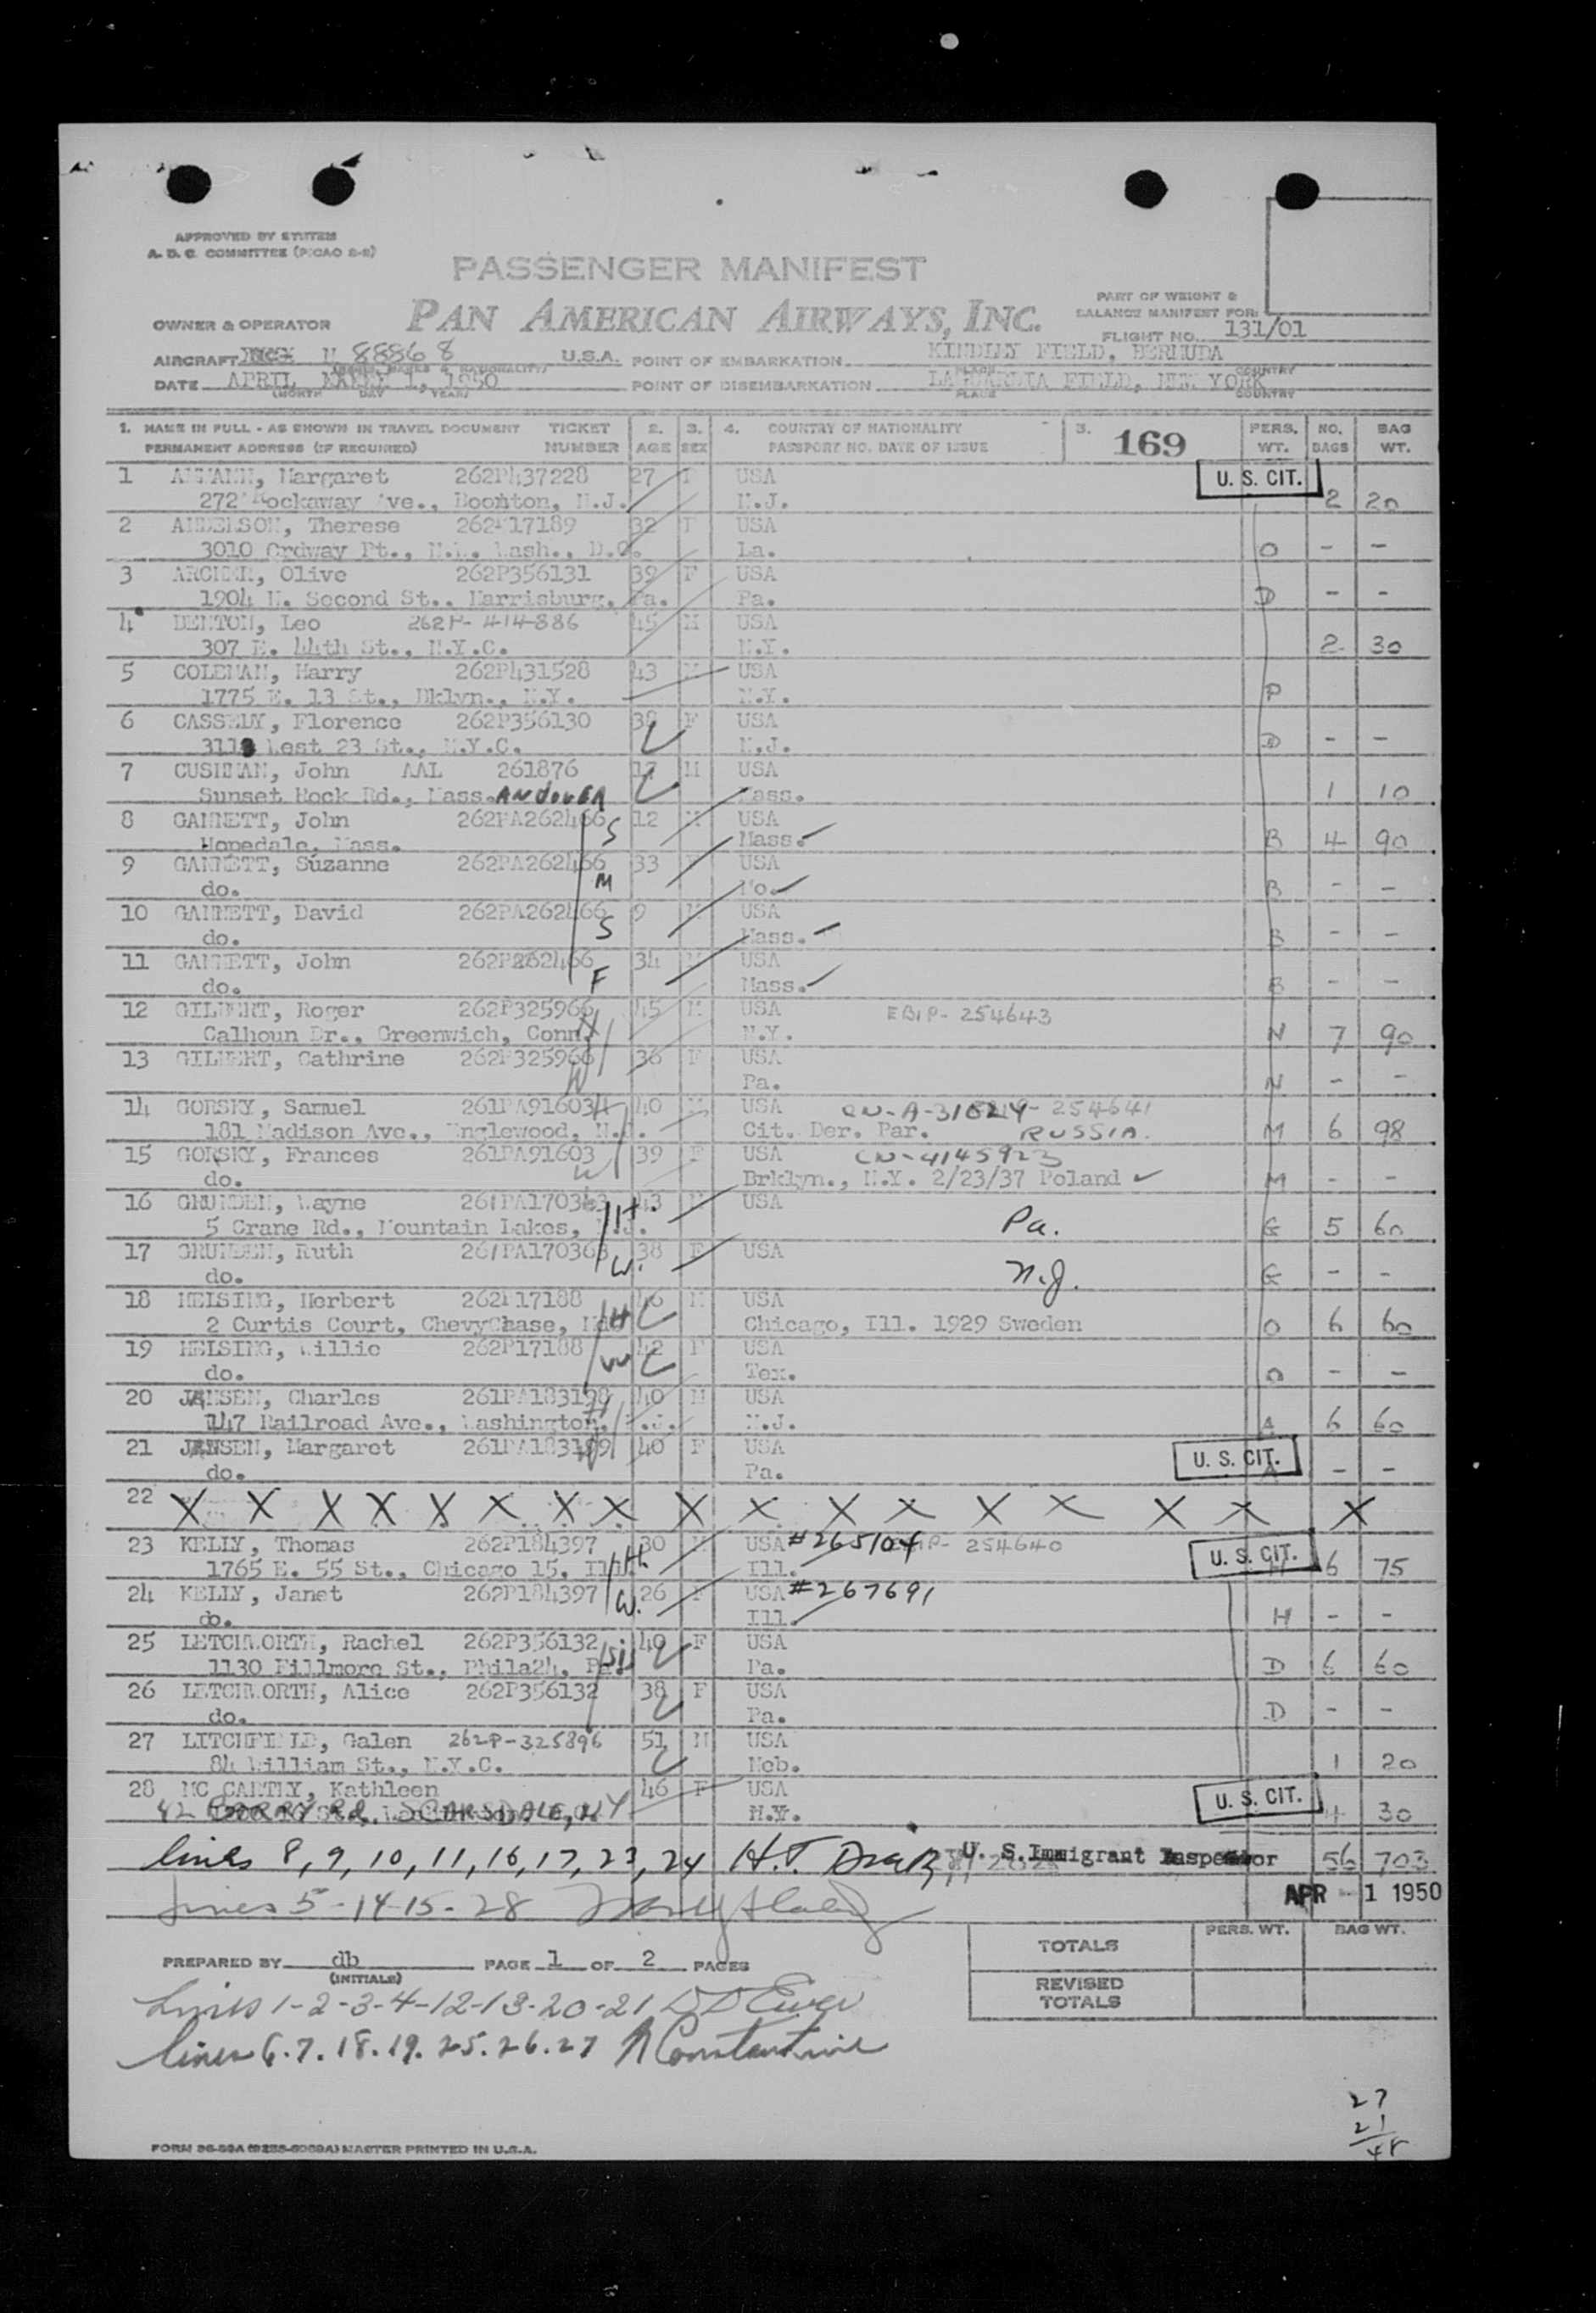 APPROVED BY SYSTEM
A. D. C. COMMITTEE (PICAO 2-2)
PASSENGER MANIFEST
PAN AMERICAN AIRWAYS, INC.
PART OF WEIGHT &
BALANCE MANIFEST FOR:
OWNER & OPERATOR
FLIGHT NO. 131/01
AIRCRAFT N 88868 U.S.A. POINT OF EMBARKATION KINDLEY FIELD, BERMUDA
DATE APRIL 1, 1950 POINT OF DISEMBARKATION LA GUARDIA FIELD, NEW YORK
(MONTH DAY YEAR) PLACE COUNTRY
1. NAME IN FULL - AS SHOWN IN TRAVEL DOCUMENT TICKET 2. 3. 4. COUNTRY OF NATIONALITY 5. 169 PERS. NO. BAG
PERMANENT ADDRESS (IF REQUIRED) NUMBER AGE SEX PASSPORT NO. DATE OF ISSUE WT. BAGS WT.
1 Margaret 262P437228 27 F USA U. S. CIT.
272 Rockaway Ave., Boonton, N.J. N.J. 2 20
2 ANDERSON, Therese 262P17189 32 F USA
3010 Ordway Pt., N.W. Wash., D.C. La. O - -
3 ARCHER, Olive 262P356131 39 F USA
1904 N. Second St., Harrisburg, Pa. Pa. D - -
4 DENTON, Leo 262P-414886 45 M USA
307 E. 44th St., N.Y.C. N.Y. 2 30
5 COLEMAN, Harry 262P431528 43 M USA
1775 E. 13 St., Bklyn., N.Y. N.Y. P
6 Florence 262P356130 38 F USA
West 23 St., N.Y.C. N.J. D - -
7 CUSHMAN, John AAL 261876 17 M USA
Sunset Rock Rd., Mass. ANDOVER Mass. 1 10
8 GANNETT, John 262PA262466 S 12 M USA
Hopedale, Mass. Mass. B 4 90
9 GANNETT, Suzanne 262PA262466 M 33 F USA
do. Mo. B - -
10 GANNETT, David 262PA262466 S 9 M USA
do. Mass. B - -
11 GANNETT, John 262PA262466 F 34 M USA
do. Mass. B - -
12 GILBERT, Roger 262P325966 H 45 M USA EBIP-254643
Calhoun Dr., Greenwich, Conn. N.Y. N 7 90
13 GILBERT, Cathrine 262P325966 W 36 F USA
Pa. N - -
14 GORSKY, Samuel 261PA91603 H 40 M USA 254641
181 Madison Ave., Englewood, N.J. Cit. Der. Par. RUSSIA. M 6 98
15 GORSKY, Frances 261PA91603 W 39 F USA CN-4145923
do. Brklyn., N.Y. 2/23/37 Poland M - -
16 GRUNDEN, Wayne H. 43 M USA
5 Crane Rd., Mountain Lakes, N.J. Pa. G 5 60
17 GRUNDEN, Ruth 261PA170363 W. 38 F USA
do. N.J. G - -
18 HELSING, Herbert 262P17188 H 46 M USA
2 Curtis Court, ChevyChase, Md. Chicago, Ill. 1929 Sweden O 6 60
19 HELSING, Willie 262P17188 W 42 F USA
do. Tex. O - -
20 JANSEN, Charles 261PA183198 H 40 M USA
147 Railroad Ave., Washington, N.J. N.J. A 6 60
21 JANSEN, Margaret 261PA183199 W 40 F USA U. S. CIT.
do. Pa. A - -
22 X X X X X X X X X X X X X X X X X
23 KELLY, Thomas 262P184397 H. 30 M USA #265104 254640 U. S. CIT.
1765 E. 55 St., Chicago 15, Ill. Ill. H 6 75
24 KELLY, Janet 262P184397 W. 26 F USA #267691
do. Ill. H - -
25 LETCHWORTH, Rachel 262P356132 Sis 40 F USA
1130 Fillmore St., Phila24, Pa. Pa. D 6 60
26 LETCHWORTH, Alice 262P356132 38 F USA
do. Pa. D - -
27 LITCHFIELD, Galen 262P-325896 51 M USA
84 William St., N.Y.C. Neb. 1 20
28 MC CARTHY, Kathleen 46 F USA U. S. CIT.
42 Rd. SCARSDALE, NY N.Y. 4 30
lines 8, 9, 10, 11, 16, 17, 23, 24 H.T. U. S. Immigrant Inspector 56 703
Lines 5-14-15-28 APR -1 1950
PERS. WT. BAG WT.
TOTALS
PREPARED BY db PAGE 1 OF 2 PAGES
(INITIALS)
REVISED TOTALS
Lines 1-2-3-4-12-13-20-21
lines 6.7.18.19.25.26.27 Constantine
27
21
48
MASTER PRINTED IN U.S.A.